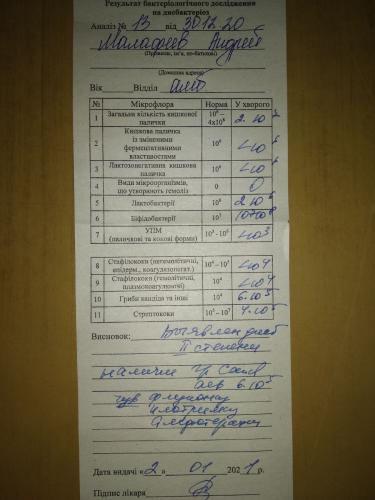 Результат бактеріологічного дослідження
на дисбактеріоз
Аналіз № 13 від 30.12.20
Малафеев Андрей
(Прізвище, ім'я, по-батькові)
(Домашня адреса)
Вік Відділ амб
№ Мікрофлора Норма У хворого
1 Загальна кількість кишкової палички
2 Кишкова паличка із зміненими ферментативними властивостями 10⁶ <10⁶
3 Лактозонегативна кишкова паличка 10⁶ <10⁶
4 Види мікроорганізмів, що утворюють гемоліз 0 0
5 Лактобактерії 2·10⁶
6 Біфідобактерії
7 УПМ (паличкові та кокові форми) <10³
8 Стафілококи (негемолітичні, епідерм., коагулязопегат.) <10⁴
9 Стафілококи (гемолітичні, плазмокоагулюючі) 10⁴ <10⁴
10 Гриби кандіда та інші 10⁴ 6·10⁵
11 Стрептококи 4·10⁵
Висновок: Выявлен дисб
II степени
наличие гр Canд
6·10⁵
чув флуконаз
клотримаз
амфотерац
Дата видачі «2» 01 2021 р.
Підпис лікаря